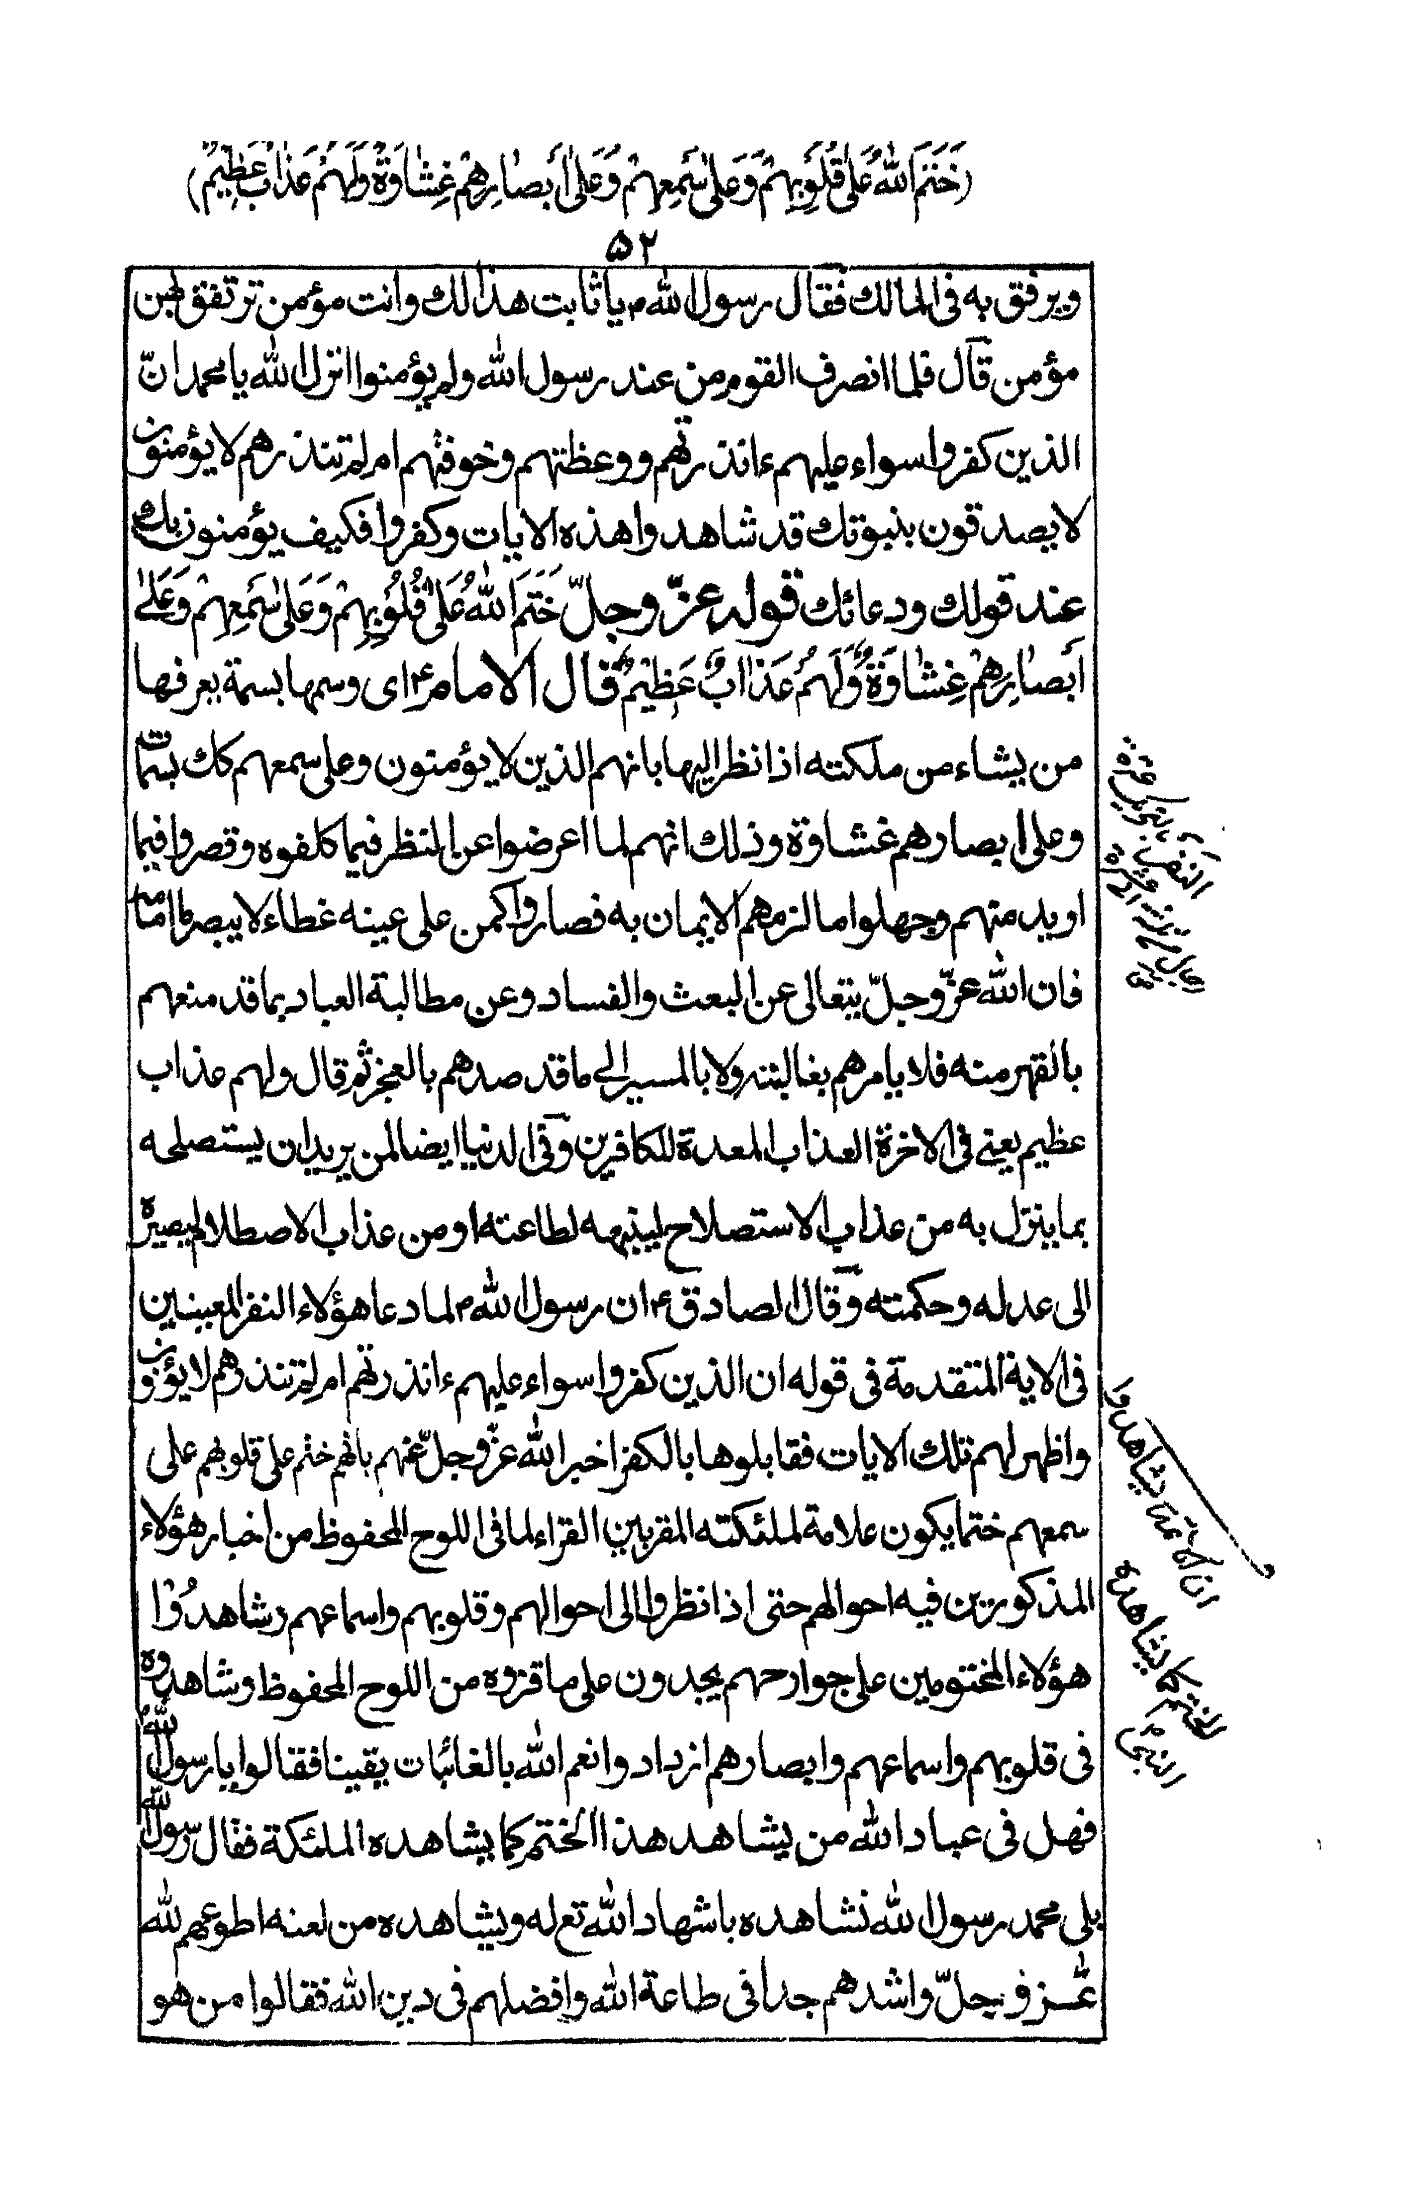 (خَتَمَ اللهُ عَلىٰ قُلُوبِهِمْ وَعَلىٰ سَمْعِهِمْ وَعَلىٰ أَبْصَارِهِمْ غِشَاوَةٌ وَلَهُمْ عَذَابٌ عَظِيمٌ)
۵۲
ويرفق به في المالك فقال رسول الله ص يا ثابت هذا لك وانت مؤمن ترتفق بمن
مؤمن قال فلما انصرف القوم من عند رسول الله ولم يؤمنوا انزل الله يا محمد انّ
الذين كفروا سواء عليهم ءانذرتهم ووعظتهم وخوفتهم ام لم تنذرهم لا يؤمنون
لا يصدقون بنبوتك قد شاهدوا هذه الايات وكفروا فكيف يؤمنون بك
عند قولك ودعائك قوله عزّ وجلّ خَتَمَ اللهُ عَلىٰ قُلُوبِهِمْ وَعَلىٰ سَمْعِهِمْ وَعَلىٰ
أَبْصَارِهِمْ غِشَاوَةٌ وَلَهُمْ عَذَابٌ عَظِيمٌ قال الامام ع اى وسمها بسمة يعرفها
من يشاء من ملئكته اذا نظر اليها بانهم الذين لا يؤمنون وعلى سمعهم كك بسمات
وعلى ابصارهم غشاوة وذلك انهم لما اعرضوا عن النظر فيما كلفوه وقصروا فيما
اريد منهم وجهلوا ما لزمهم الايمان به فصاروا كمن على عينه غطاء لا يبصر ما امامه
فان الله عزّ وجلّ يتعالى عن البعث والفساد وعن مطالبة العباد بما قد منعهم
بالقهر منه فلا يامرهم بمغالبته ولا بالمسير الى ما قد صدهم بالعجز ثم قال ولهم عذاب
عظيم يعنى في الاخرة العذاب المعدة للكافرين وفى الدنيا ايضا لمن يريد ان يستصلحه
بما ينزل به من عذاب الاستصلاح لينبهه لطاعته او من عذاب الاصطلام ليصيره
الى عدله وحكمته وقال الصادق ع ان رسول الله ص لما دعا هؤلاء النفر المعينين
فى الاية المتقدمة فى قوله ان الذين كفروا سواء عليهم ءانذرتهم ام لم تنذرهم لا يؤمنون
واظهر لهم تلك الايات فقابلوها بالكفر اخبر الله عزّ وجلّ عنهم بانهم ختم على قلوبهم على
سمعهم ختما يكون علامة لملئكته المقربين القراء لما فى اللوح المحفوظ من اخبار هؤلاء
المذكورين فيه احوالهم حتى اذا نظروا الى احوالهم وقلوبهم واسماعهم وشاهدُوْا
هؤلاء المختومين على جوارحهم يجدون على ما قرؤه من اللوح المحفوظ وشاهدوه
فى قلوبهم واسماعهم وابصارهم ازداد وانعم الله بالغائبات يقينا فقالوا يا رسول الله
فهل فى عباد الله من يشاهد هذا الختم كما يشاهده الملئكة فقال رسول الله
بلى محمد رسول الله نشاهده باشهاد الله تع له ويشاهده من لعنه اطوعهم لله
عّز وجلّ واشدهم جدا فى طاعة الله وافضلهم فى دين الله فقالوا من هو
النفر بالتحريك عدة
ان الائمة يشاهدوا
الختم كما يشاهده
النبى